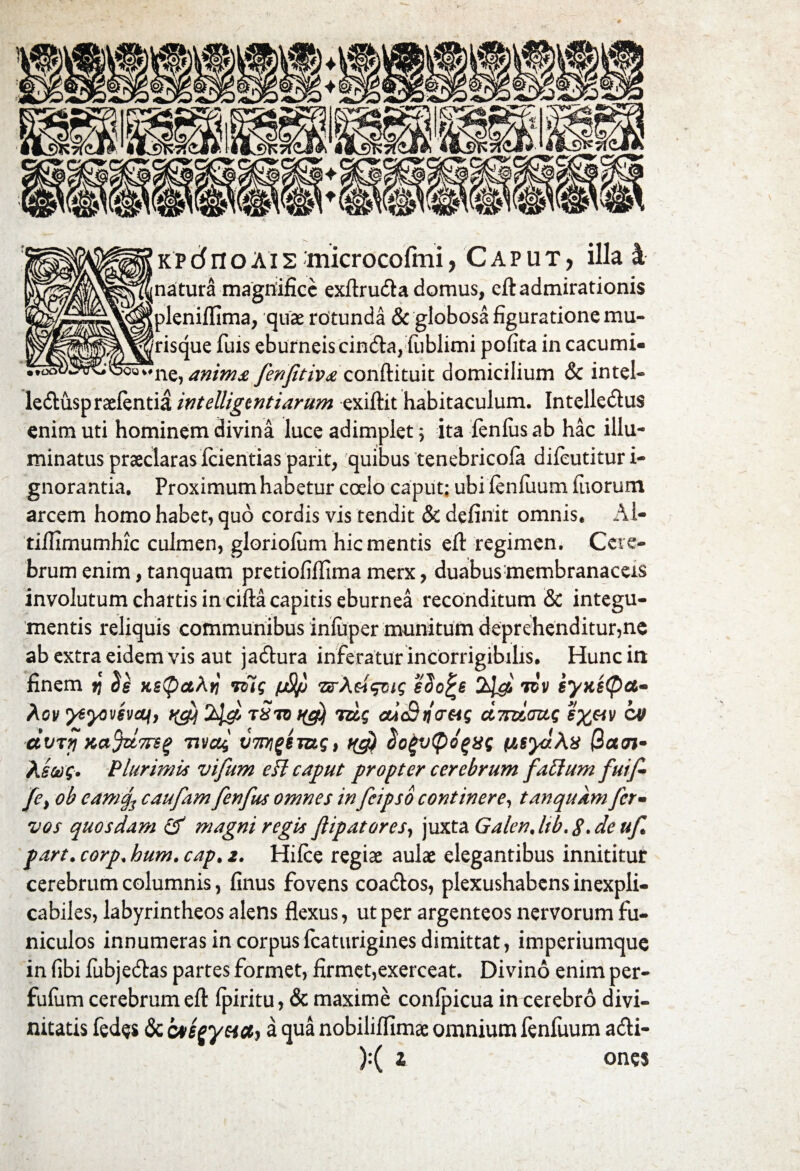 AKPΌΠΟΛΙΣ microcoſmi, CAPUT, illa à
naturâ magnificè exſtructa domus, eſt admirationis
pleniſſima, quæ rotundâ & globosâ figuratione mu-
risque ſuis eburneis cincta, ſublimi poſita in cacumi-
ne, animæ ſenſitivæ conſtituit domicilium & intel-
lectûs præſentiâ intelligentiarum exiſtit habitaculum. Intellectus
enim uti hominem divinâ luce adimplet; ita ſenſus ab hâc illu-
minatus præclaras ſcientias parit, quibus tenebricoſa diſcutitur i-
gnorantia. Proximum habetur cœlo caput: ubi ſenſuum ſuorum
arcem homo habet, quò cordis vis tendit & definit omnis. Al-
tiſſimum hîc culmen, glorioſum hic mentis eſt regimen. Cere-
brum enim, tanquam pretioſiſſima merx, duabus membranaceis
involutum chartis in ciſtâ capitis eburneâ reconditum & integu-
mentis reliquis communibus inſuper munitum deprehenditur, ne
ab extra eidem vis aut jactura inferatur incorrigibilis. Hunc in
finem ἡ δὲ κεφαλὴ τοῖς μὲν πλείςοις ἔδοξε διὰ τὸν ἐγκέφα-
λον γεγονέναι, καὶ διὰ τȣ͂το καὶ τὰς αἰσθήσεις ἁπάσας ἔχειν ἐν
αὐτῇ καθάπερ τινὰς ὑπηρέτας, καὶ δορυφόρȣς μεγάλȣ βασι-
λέως. Plurimis viſum eſt caput propter cerebrum factum fuiſ-
ſe, ob eamq́; cauſam ſenſus omnes in ſeipso continere, tanquàm ſer-
vos quosdam & magni regis ſtipatores, juxta Galen. lib. 8. de uſ.
part. corp. hum. cap. 2. Hiſce regiæ aulæ elegantibus innititur
cerebrum columnis, ſinus fovens coactos, plexus habens inexpli-
cabiles, labyrintheos alens flexus, ut per argenteos nervorum fu-
niculos innumeras in corpus ſcaturigines dimittat, imperiumque
in ſibi ſubjectas partes formet, firmet, exerceat. Divinô enim per-
fuſum cerebrum eſt ſpiritu, & maximè conſpicua in cerebrô divi-
nitatis ſedes & ἐνέργεια, à quâ nobiliſſimæ omnium ſenſuum acti-
):( 2 ones